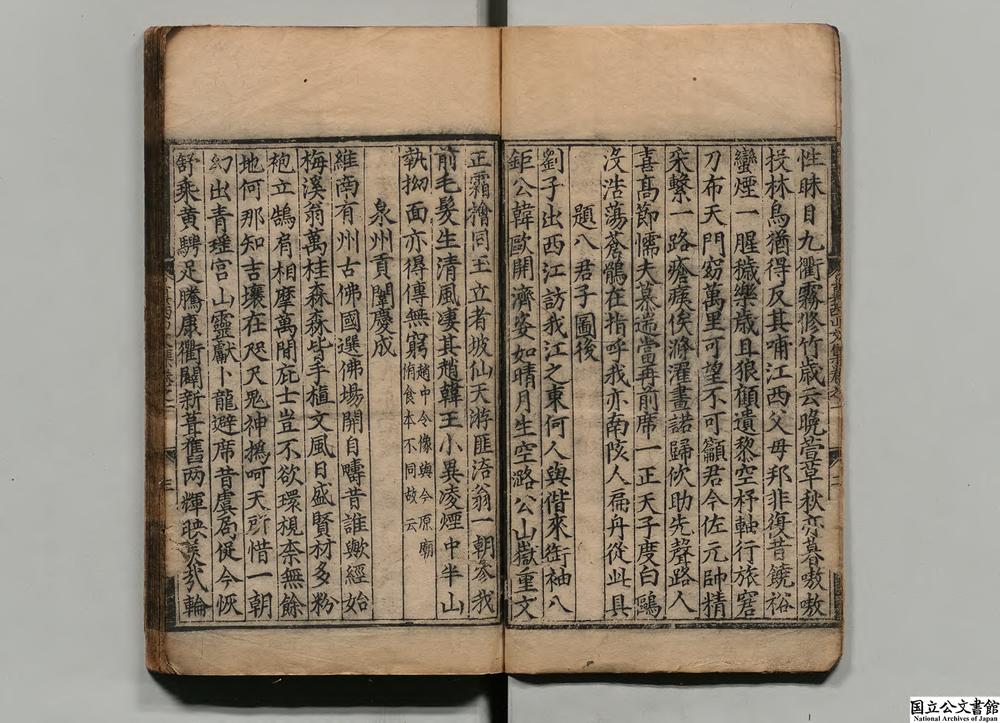 性昧目九衢霧修竹歲云晚萱草秋亦暮嗷嗷
投林鳥猶得反其哺江西父母邦非復昔饒裕
蠻煙一腥穢樂歲且狼顧遺黎空杼軸行旅窘
刀布天門窈萬里可望不可籲君今佐元帥精
采繫一路瘡痍俟滌濯畫諾歸佽助先聲路人
喜高節懦夫慕遄當再前席一正天子度白鷗
沒浩蕩蒼鶻在指呼我亦南陔人扁舟從此具
題八君子圖後
劉子出西江訪我江之東何人與偕來衙袖八
鉅公韓歐開濟姿如晴月生空潞公山嶽重文
正霜擣同玉立者坡仙天游匪涪翁一朝參我
前毛髮生清風凄其趙韓王小異凌煙中半山
執拗面亦得傳無窮趙中令像與今原廟
侑食本不同故云
泉州貢闈慶成
維南有州古佛國選佛場開自疇昔誰歟經始
梅溪翁萬桂森森皆手植文風日盛賢材多粉
袍立鵠肩相摩萬間庇士豈不欲環視柰無餘
地何那知吉壤在咫尺鬼神撝呵天所惜一朝
幻出青瑤宮山靈獻卜龍避席昔虞局促今恢
舒乘黃騁足騰康衢闢新葺舊兩輝映美哉輪
二
三
国立公文書館
National Archives of Japan